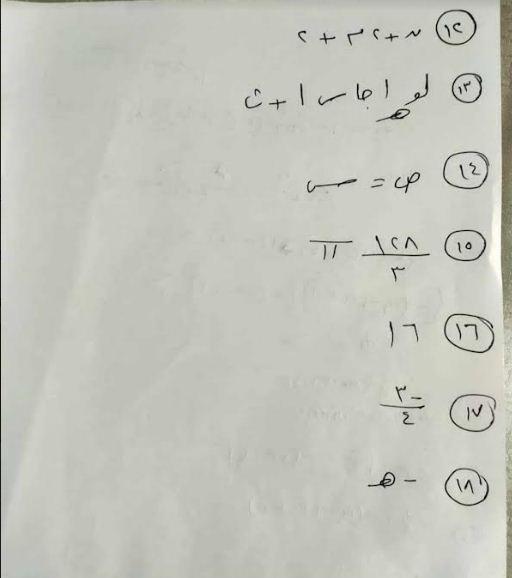 (١٢) ٢ + ٣٢ + ٢
(١٣) لو_هـ | جا س | + ث
(١٤) ص = س
(١٥) ١٢٨/٣ π
(١٦) ١٦
(١٧) -٣/٤
(١٨) - هـ